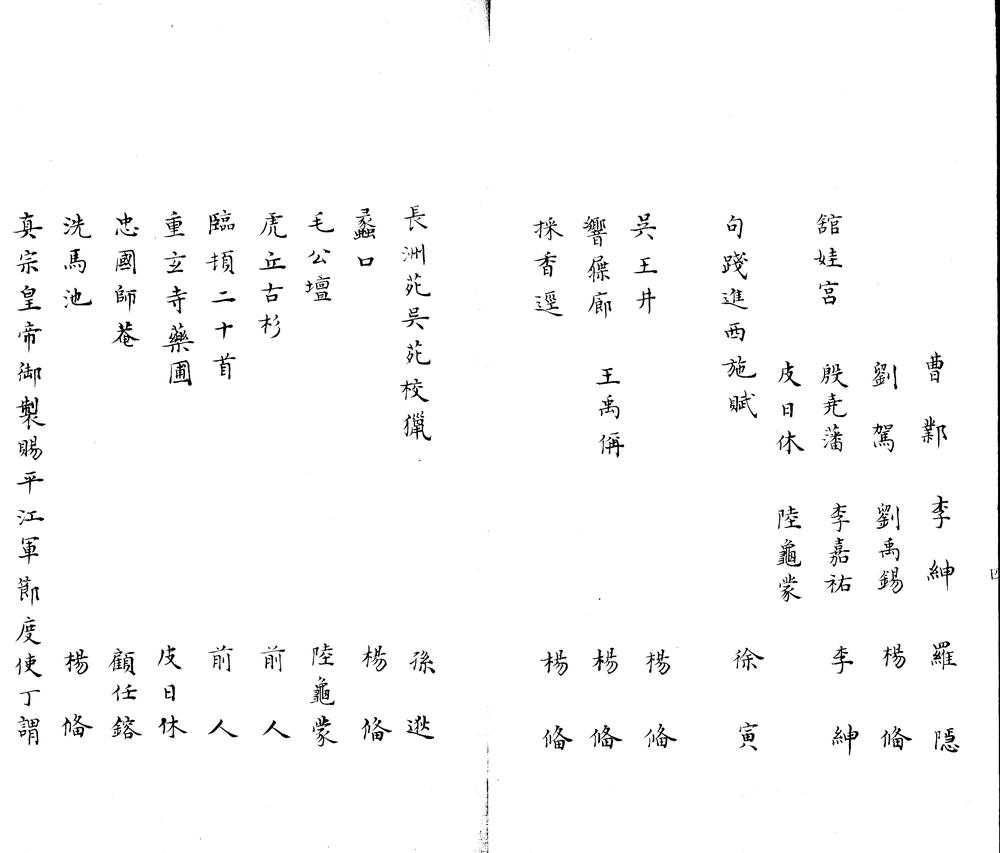 曹鄴 李紳 羅隱
劉駕 劉禹錫 楊俻
舘娃宮 殷堯藩 李嘉祐 李紳
皮日休 陸龜蒙
句踐進西施賦 徐寅
吳王井 楊俻
響屧廊 王禹偁 楊俻
採香逕 楊俻
長洲苑吳苑校獵 孫逖
蠡口 楊俻
毛公壇 陸龜蒙
虎丘古杉 前人
臨頓二十首 前人
重玄寺藥圃 皮日休
忠國師菴 顧任鎔
洗馬池 楊俻
真宗皇帝御製賜平江軍節度使丁謂
四